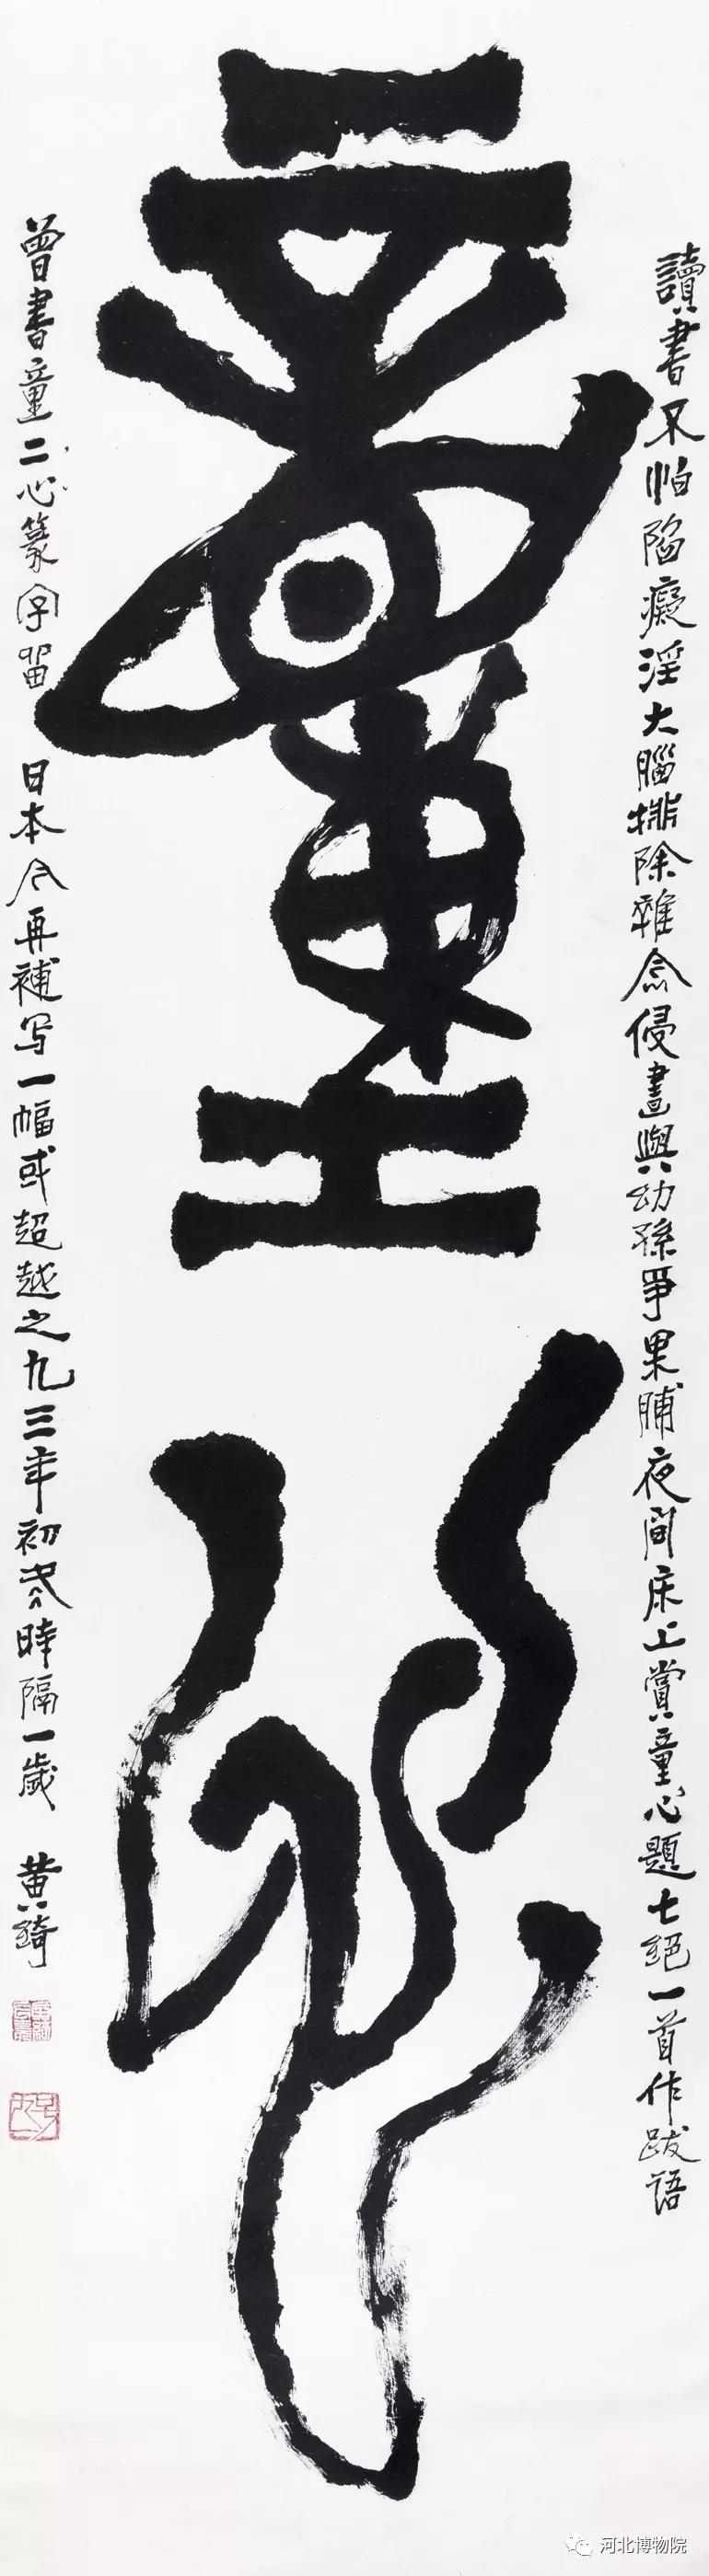 讀書不怕陷癡淫大腦排除雜念侵晝與幼孫爭果脯夜間床上賞童心題七絕一首作跋語
童心
曾書童二心篆字留 日本今再補写一幅或超越之九三年初冬時隔一歲 黄綺
河北博物院